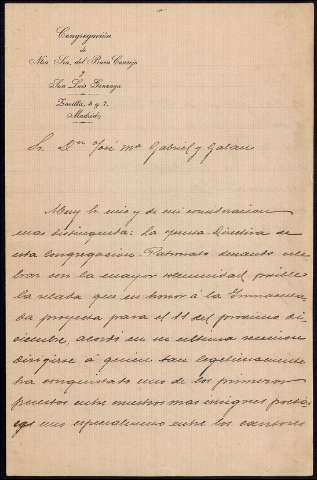 Congregación
de
Ntra Sra. del Buen Consejo
y
San Luis Gonzaga
Zorilla, 5 y 7.
Madrid
Sr. Dn José Mª Gabriel y Galan
Muy Sr. mio y de mi consideracion
mas distinguida: La Junta Directiva de
esta Congregacion-Patronato deseando cele
brar con la mayor solemnidad posible
la velada que en honor á la Inmacula
da proyecta para el 11 del proximo di-
ciembre, acordó en su ultima reunion
dirigirse á quien tan legitimamente
ha conquistado uno de los primeros
puestos entre nuestros mas insignes poetas
y mas especialmente entre los cantores